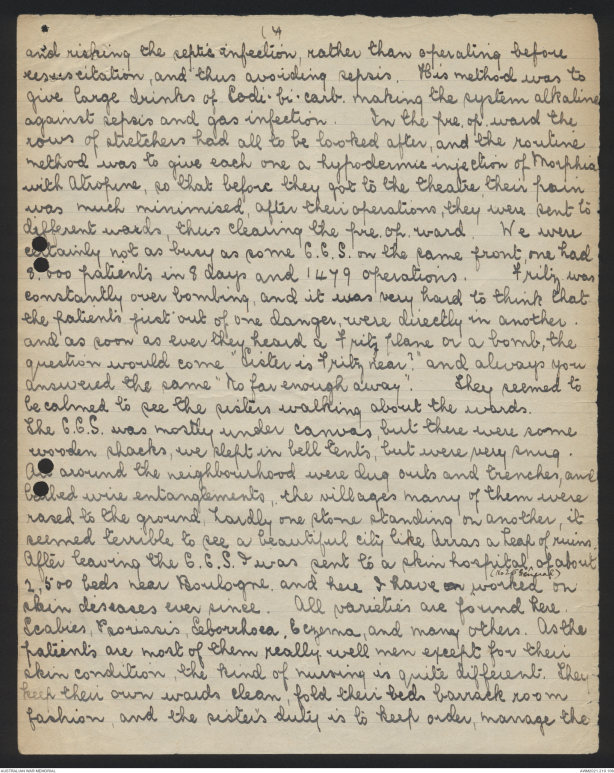 (4
and risking the septic infection, rather than operating before
resuscitation, and thus avoiding sepsis. His method was to
give large drinks of Codi-bi-carb. making the system alkaline
against sepsis and gas infection. In the pre. op. ward the
rows of stretchers had all to be looked after, and the routine
method was to give each one a hypodermic injection of Morphia
with Atropine, so that before they got to the theatre, their pain
was much minimised, after their operations, they were sent to
different wards, thus clearing the pre. op. ward. We were
certainly not as busy as some C.C.S. on the same front, one had
8.000 patients in 8 days and 1479 operations. Fritz was
constantly over bombing, and it was very hard to think that
the patients just out of one danger, were directly in another.
and as soon as ever they heard a Fritz plane or a bomb, the
question would come "Sister is Fritz near?" and always you
answered the same "No far enough away". They seemed to
be calmed to see the sisters walking about the wards.
The C.C.S. was mostly under canvas, but there were some
wooden shacks, we slept in bell tents, but were very snug.
All around the neighbourhood were dug outs and trenches, and
barbed wire entanglements, the villages many of them were
rased to the ground, hardly one stone standing on another, it
seemed terrible to see a beautiful city like Arras a heap of ruins.
After leaving the C.C.S. I was sent to a skin hospital, of about
2,500 beds near Boulogne. and here I have worked on
skin deseases ever since. All varieties are found here.
Scabies, Psoriasis, Seborrhoea, Eczema, and many others. As the
patients are most of them really well men except for their
skin condition, the kind of nursing is quite different. They
keep their own wards clean, fold their beds barrack room
fashion, and the sister's duty is to keep order, manage the
AUSTRALIAN WAR MEMORIAL